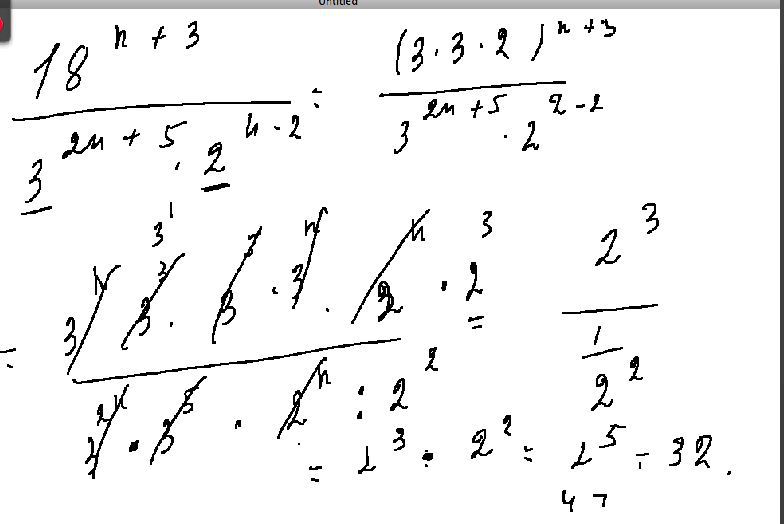 Untitled
18^{n+3} / (3^{2n+5} · 2^{n-2}) = (3·3·2)^{n+3} / (3^{2n+5} · 2^{2-2})
= 3^n 3^3 · 3^3 · 3^n · 2^n · 2^3 / (3^{2n} · 3^5 · 2^n : 2^2) = 2^3 / (1 / 2^2)
3^1
= 2^3 · 2^2 = 2^5 = 32.
47